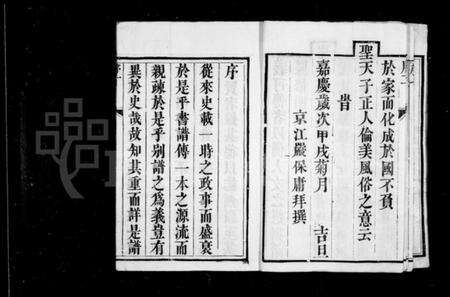 於家而化成於國不負
聖天子正人倫美風俗之意云
旹
嘉慶歲次甲戌菊月 吉旦
京江嚴保庸拜撰
序
從來史載一時之政事而盛衰
於是乎書譜傳一本之源流而
親疎於是乎別譜之為義豈有
異於史哉故知其重而詳是譜